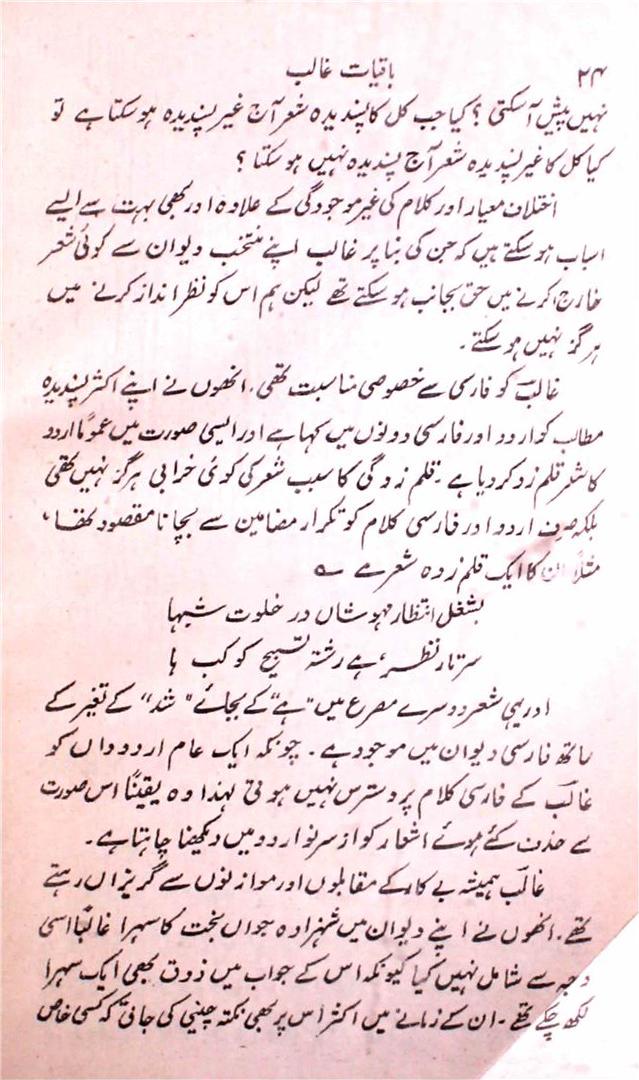 ۲۴ باقیات غالب
نہیں پیش آسکتی ؟ کیا جب کل کا پسندیدہ شعر آج غیر پسندیدہ ہو سکتا ہے تو
کیا کل کا غیر پسندیدہ شعر آج پسندیدہ نہیں ہو سکتا ؟
اختلاف معیار اور کلام کی غیر موجودگی کے علاوہ اور بھی بہت سے ایسے
اسباب ہو سکتے ہیں کہ جن کی بنا پر غالب اپنے منتخب دیوان سے کوئی شعر
خارج کرنے میں حق بجانب ہو سکتے تھے لیکن ہم اس کو نظر انداز کرنے میں
ہر گز نہیں ہو سکتے ۔
غالبؔ کو فارسی سے خصوصی مناسبت تھی ۔ انھوں نے اپنے اکثر پسندیدہ
مطالب کو اردو اور فارسی دونوں میں کہا ہے اور ایسی صورت میں عموماً اردو
کا شعر قلم زد کر دیا ہے ۔ قلم زدگی کا سبب شعر کی کوئی خرابی ہرگز نہیں تھی
بلکہ صرف اردو اور فارسی کلام کو تکرار مضامین سے بچانا مقصود تھا ،
مثلاً ان کا ایک قلم زدہ شعر ہے ؎
بشغل انتظار مہوشاں در خلوت شبہا
سر تار نظر ، ہے رشتۂ تسبیح کوکب ہا
اور یہی شعر دوسرے مصرع میں "ہے" کے بجائے "شد" کے تغیر کے
ساتھ فارسی دیوان میں موجود ہے ۔ چونکہ ایک عام اردو داں کو
غالبؔ کے فارسی کلام پر دسترس نہیں ہوتی لہذا وہ یقیناً اس صورت
سے حذف کئے ہوئے اشعار کو از سر نو اردو میں دیکھنا چاہتا ہے ۔
غالبؔ ہمیشہ بے کار کے مقابلوں اور موازنوں سے گریزاں رہتے
تھے ۔ انھوں نے اپنے دیوان میں شہزادہ جواں بخت کا سہرا غالباً اسی
وجہ سے شامل نہیں کیا کیونکہ اس کے جواب میں ذوق بھی ایک سہرا
لکھ چکے تھے ۔ ان کے زمانے میں اکثر اس پر بھی نکتہ چینی کی جاتی کہ کسی خاص